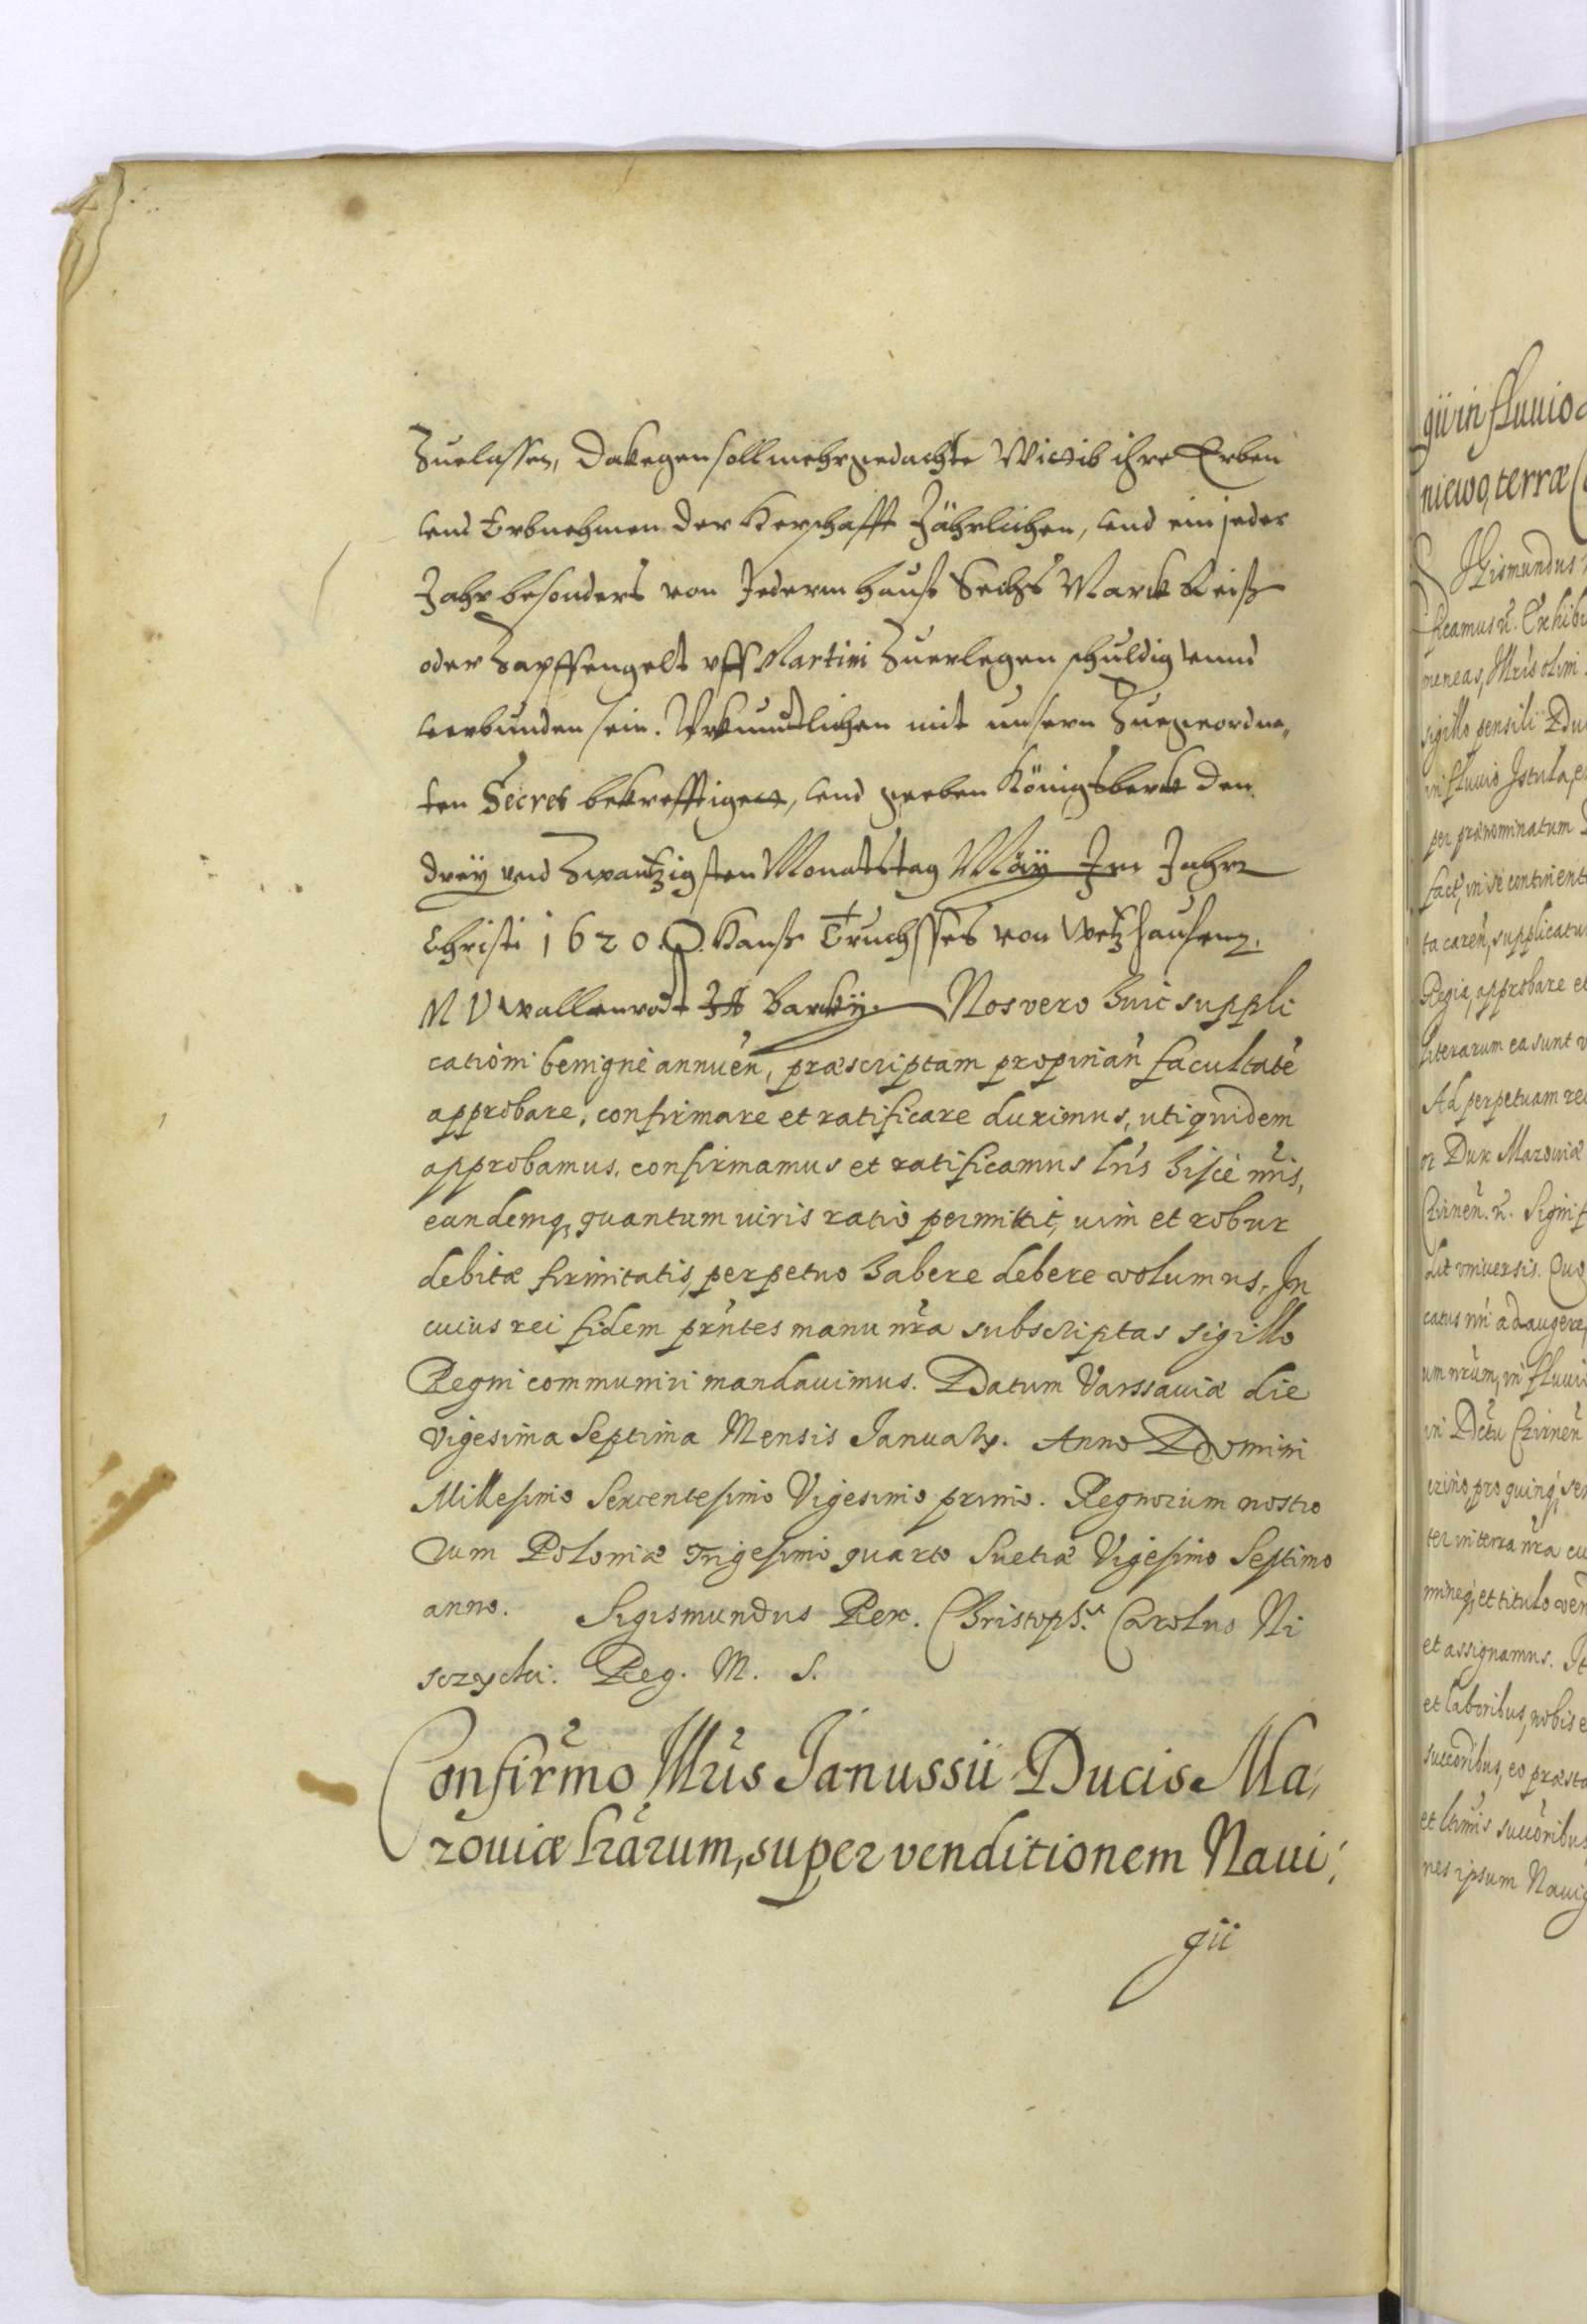 Zuelassen, Dakegen soll mehrgedachte Wittib ihre Erben
vnd Erbnehmen der Herschafft Jährlichen, vnd ein jedes
Jahr besonders von Jederm hauß Sechs Marck
oder Zapffengelt vff Martini Zuerlegen schuldig vnnd
verbunden sein. Vrkundtlichen mit unserm Zuegeordne,
ten Secret bekrefftiget, vnd geeben Königsberk den
dreÿ vnd Zwantzigsten Monatstag Maÿ Im Jahre
Christi 1620. Hanß Truchsses von Wetzhausen
M V Wallenrodt Nos vero huic suppli
cationi benigne annuen̄, præscriptam propinan̄ facultatē
approbare, confirmare et ratificare duximus, uti quidem
approbamus, confirmamus et ratificamus lr̄is hisce nr̄is,
eandemq, quantum iuris ratio permittit, uim et robur
debitæ firmitatis, perpetuo habere debere volumus, In
cuius rei fidem prn̄tes manu nr̄a subscriptas sigillo
Regni communiri mandauimus. Datum Varssauiæ die
Vigesima Septima Mensis Januarÿ. Anno Domini
Millesimo Sexcentesimo Vigesimo primo. Regnorum nostro
rum Poloniæ Trigesimo quarto Suetiæ Vigesimo Septimo
anno. Sigismundus Rex. Christoph. Carolus Ni
sczycki. Reg. M. S.
Confirm̄o Illr̄is Janussii Ducis Ma,
zouiæ lrārum, super venditionem Naui,
gii
gii in fluuio
niewo, terræ
Sigismundus
ficamus n̄. Exhibi
meneas, Illr̄is olim
sigillo pensili Du
in fluuio Istula, e
per prænominatum
fact, in se continent
ta caren̄, supplicatu
Regia, approbare et
literarum ea sunt v
Ad perpetuam rei
Dux Mazouiæ
Czirnen̄. n̄. Signif
universis. Quo
catus nr̄i adaugere
um nr̄um, in fluui
in Dc̄tu Czirnen̄
ter in terra nr̄a cu
et titulo ven
et assignamus. It
et laboribus, nobis e
succōribus, eo præsta
et succōribus
nes ipsum Nauig